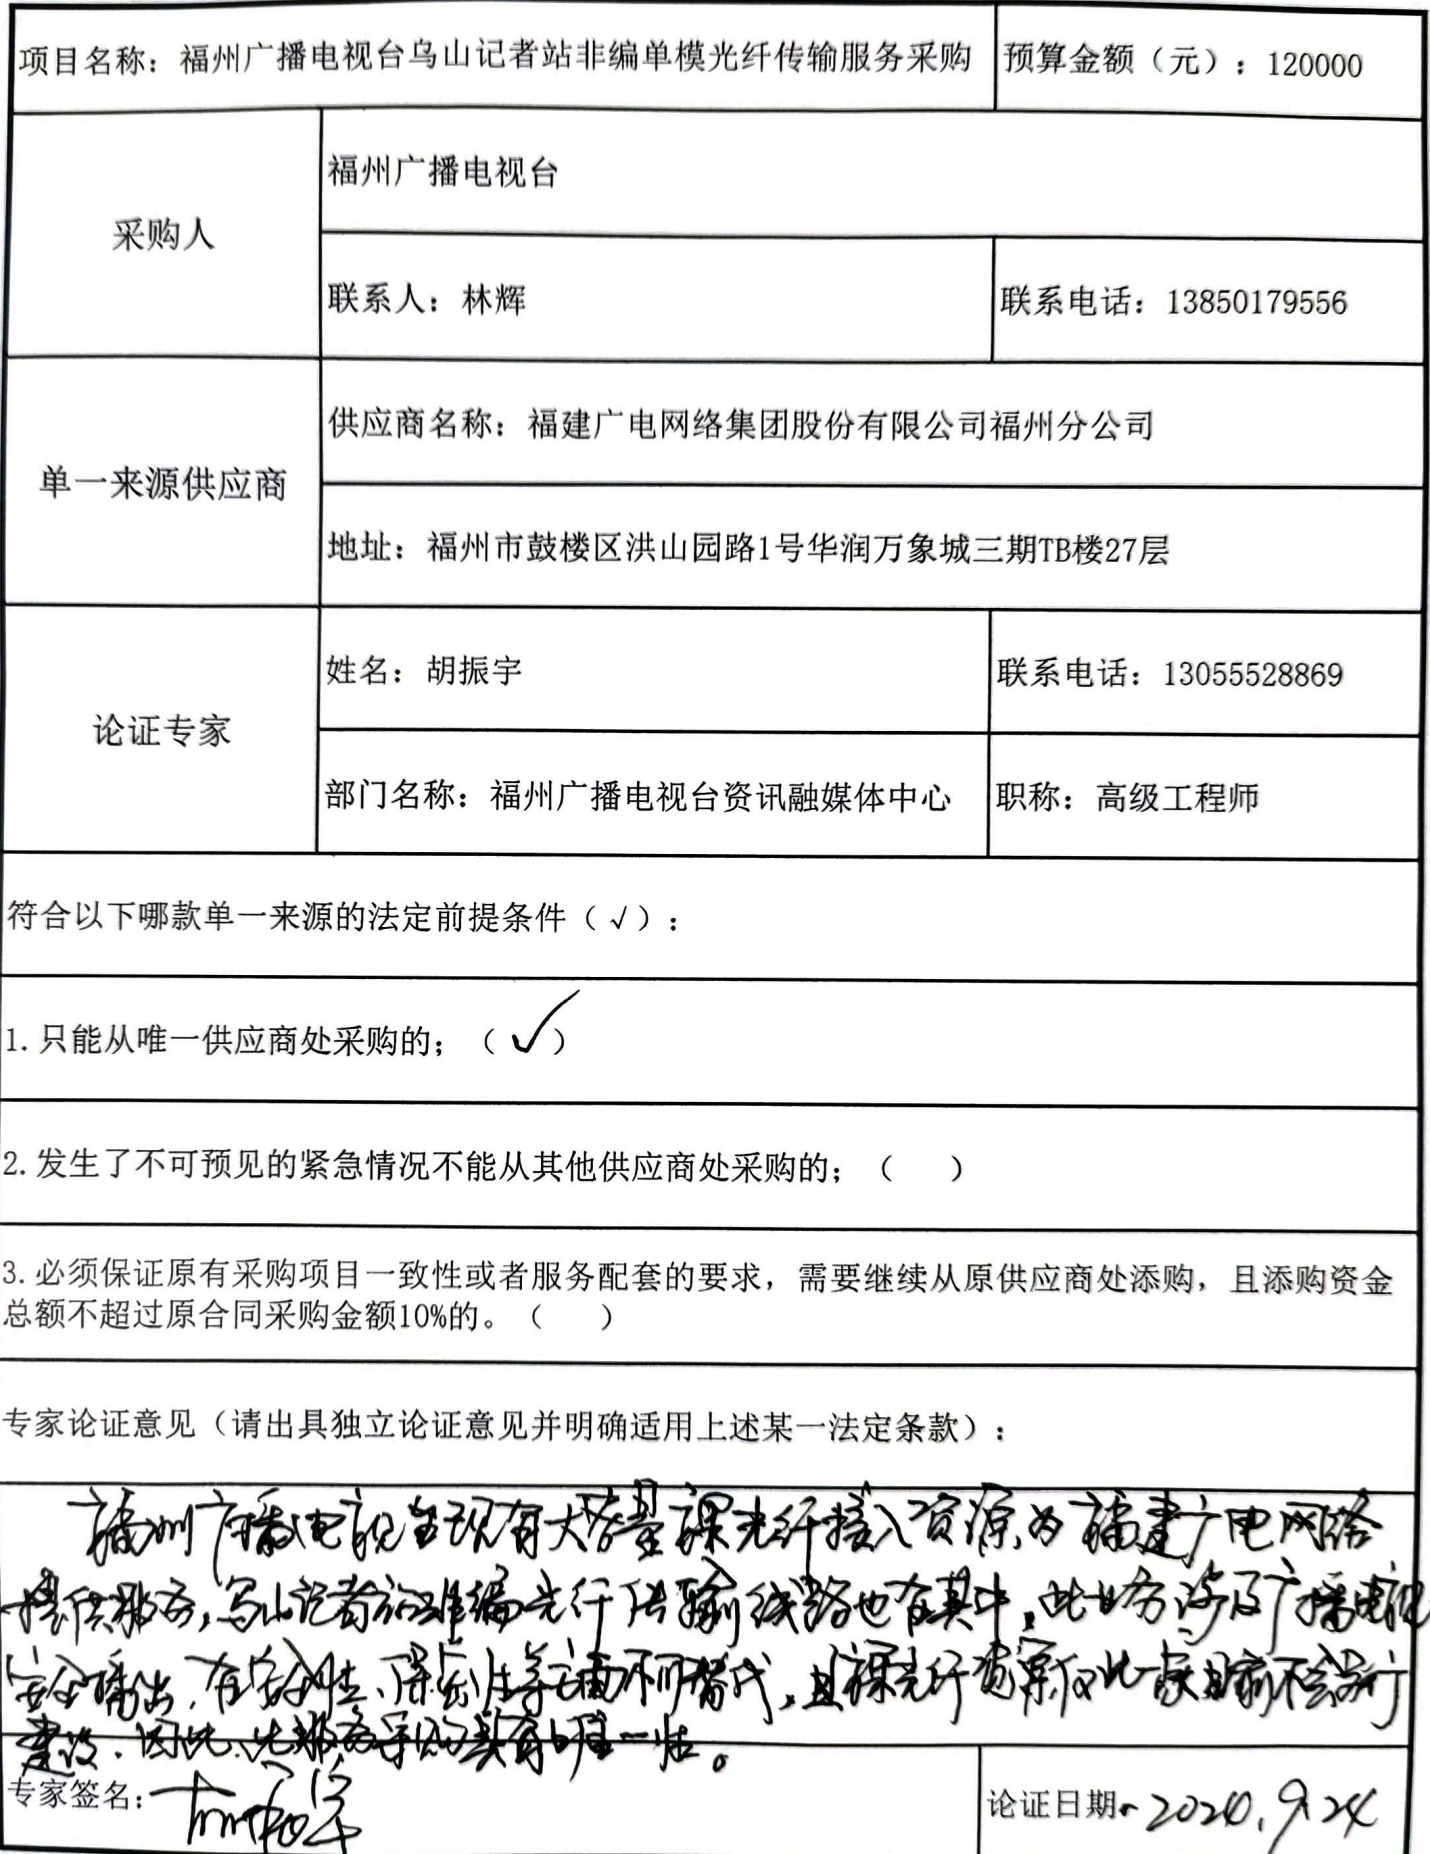 项目名称：福州广播电视台乌山记者站非编单模光纤传输服务采购 预算金额（元）：120000
福州广播电视台
采购人
联系人：林辉 联系电话：13850179556
供应商名称：福建广电网络集团股份有限公司福州分公司
单一来源供应商
地址：福州市鼓楼区洪山园路1号华润万象城三期TB楼27层
姓名：胡振宇 联系电话：13055528869
论证专家
部门名称：福州广播电视台资讯融媒体中心 职称：高级工程师
符合以下哪款单一来源的法定前提条件（√）：
1.只能从唯一供应商处采购的；（✓）
2.发生了不可预见的紧急情况不能从其他供应商处采购的；（ ）
3.必须保证原有采购项目一致性或者服务配套的要求，需要继续从原供应商处添购，且添购资金
总额不超过原合同采购金额10%的。（ ）
专家论证意见（请出具独立论证意见并明确适用上述某一法定条款）：
福州广播电视台现有大容量裸光纤接入资源为福建广电网络
提供服务，乌山记者站非编光纤传输线路也在其中，此业务涉及广播电视
安全播出，在安全性、保密性等方面不可替代，且裸光纤资源仅此一家
建设，因此，此服务采购具有唯一性。
专家签名：胡振宇 论证日期：2024.9.24